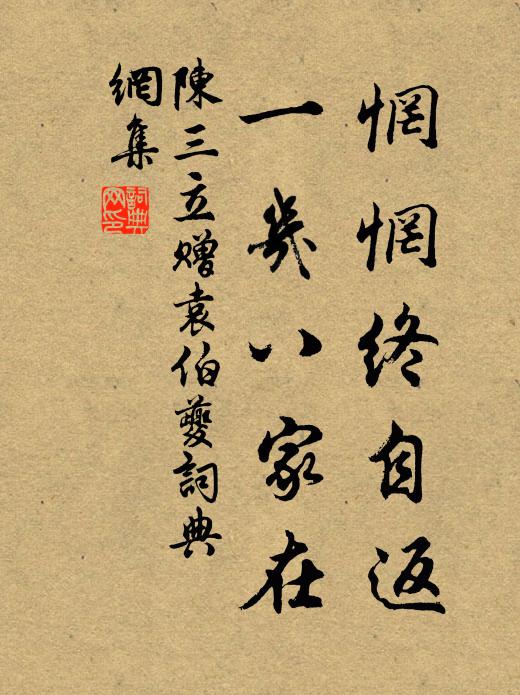 惘惘終自返
一幾八家在
陳三立贈袁伯夔詞典
網集
詞典
网印